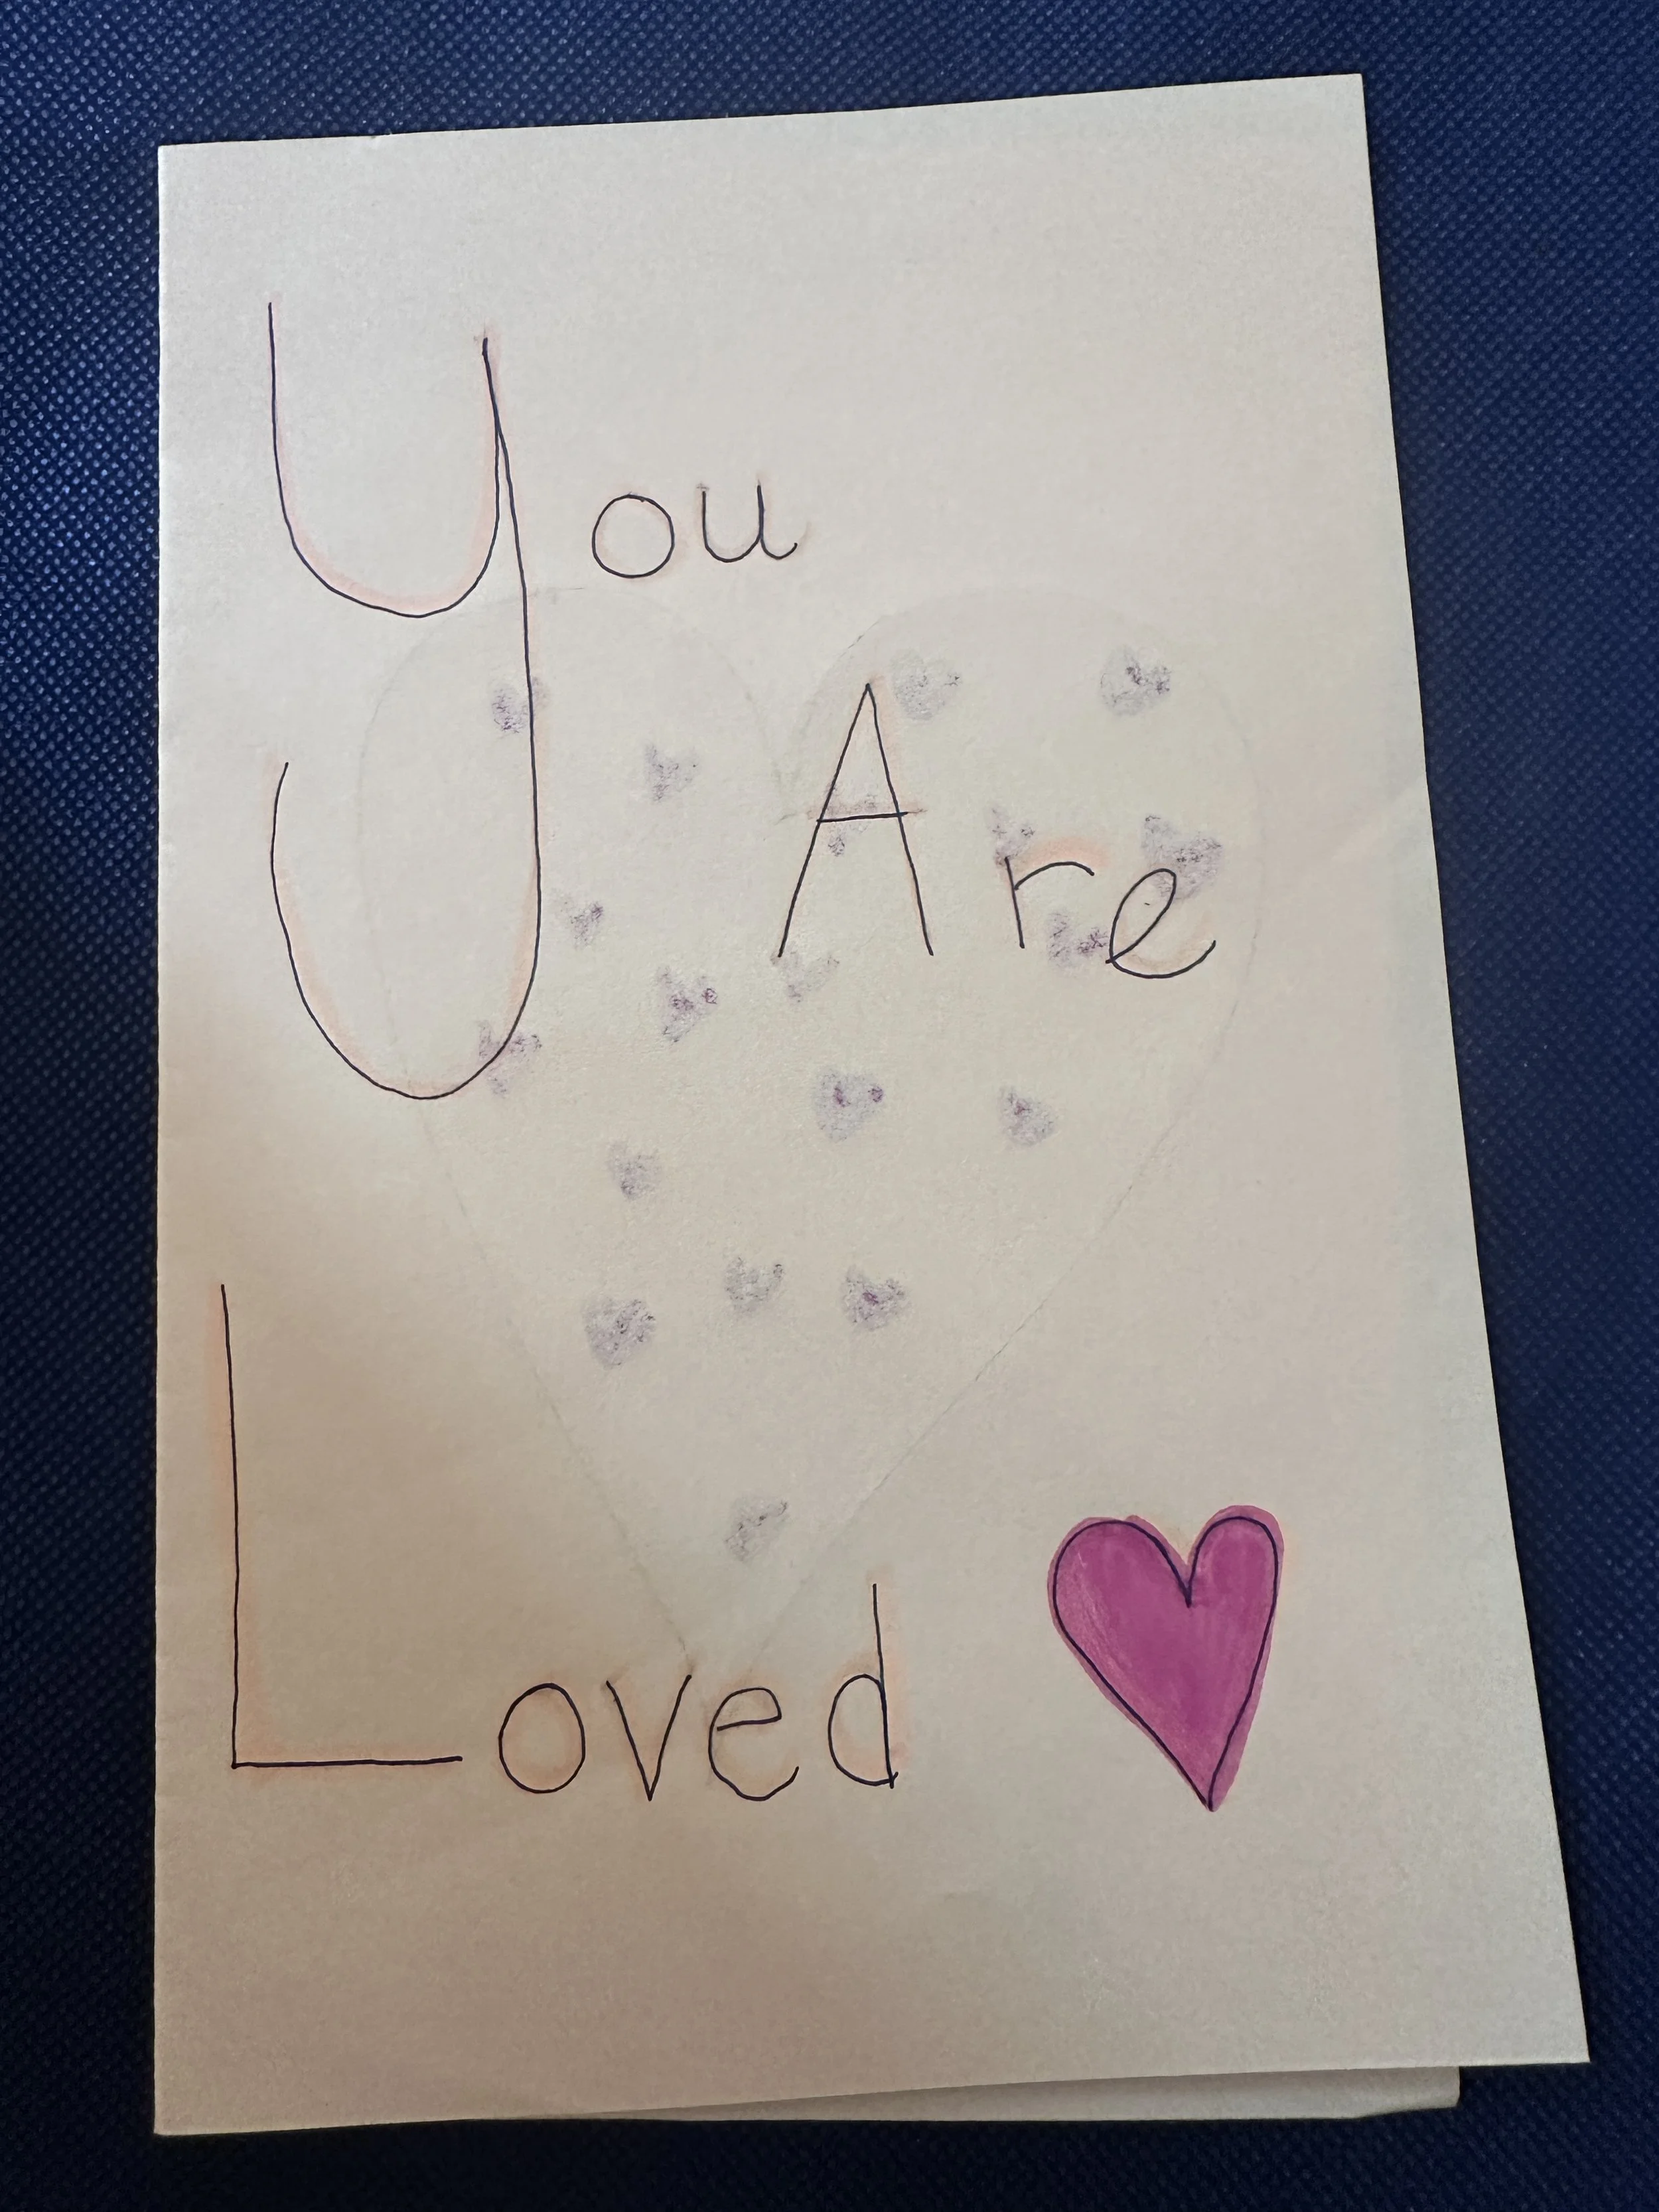 You
Are
Loved